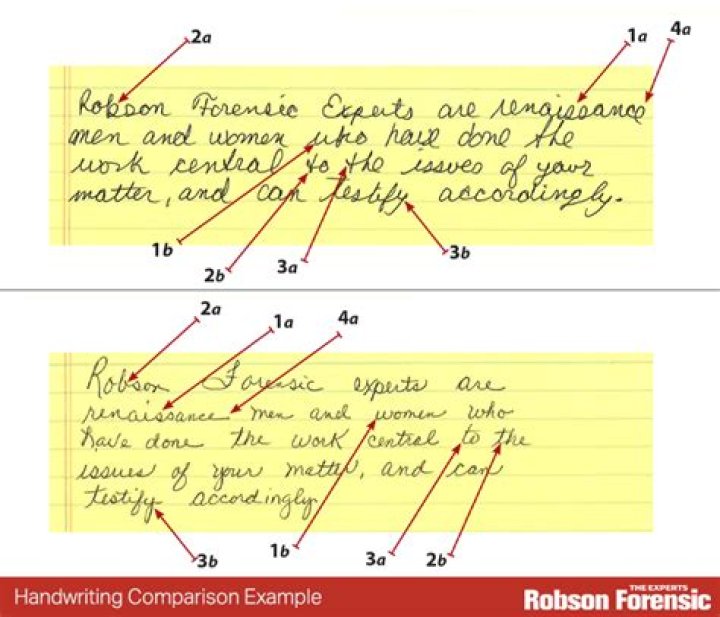 2a
1a
4a
Robson Forensic Experts are renaissance
men and women who have done the
work central to the issues of your
matter, and can testify accordingly.
1b
2b
3a
3b
2a
1a
4a
Robson Forensic experts are
renaissance men and women who
have done the work central to the
issues of your matter, and can
testify accordingly.
3b
1b
3a
2b
Handwriting Comparison Example
THE EXPERTS
Robson Forensic